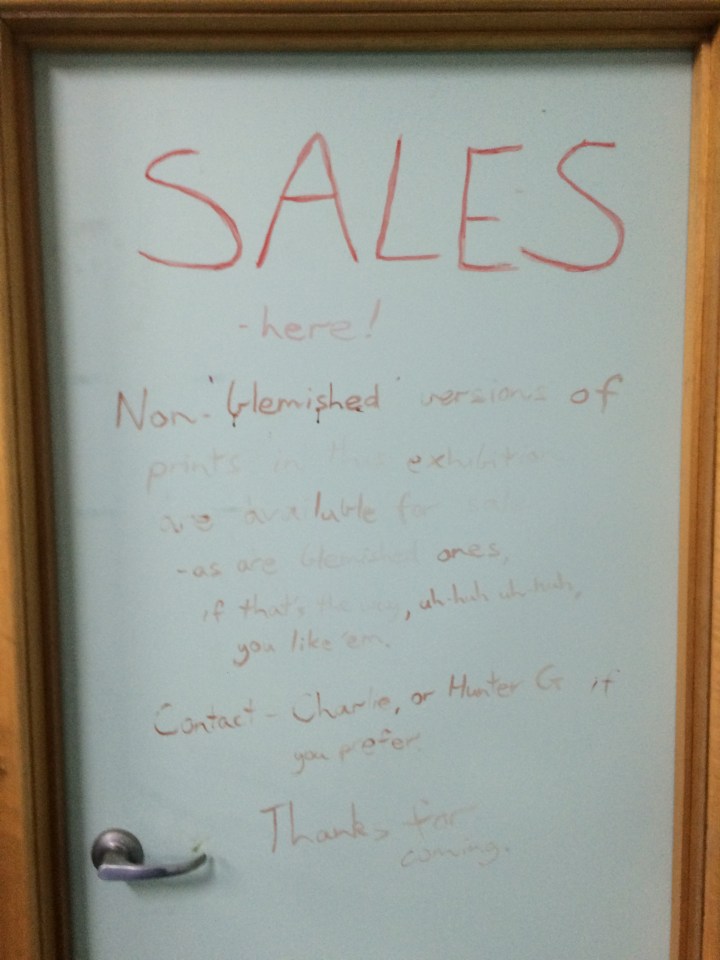 SALES
-here!
Non-'blemished' versions of
prints in this exhibition
are available for sale
-as are blemished ones,
if that's the way, uh-huh uh-huh,
you like 'em.
Contact - Charlie, or Hunter G if
you prefer.
Thanks for
coming.